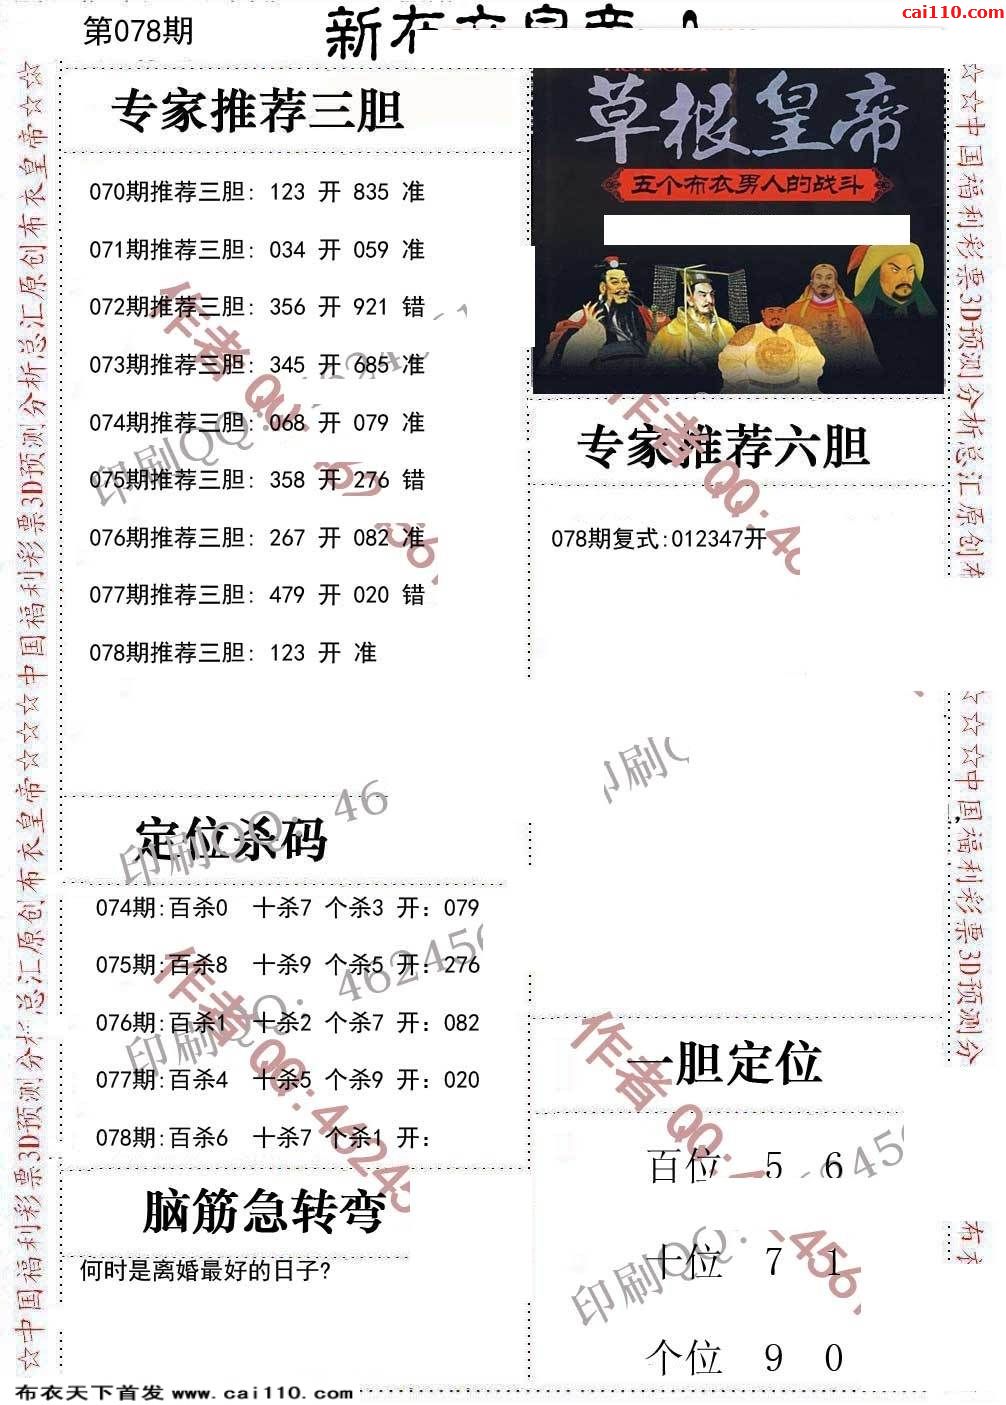 cai110.com
第078期
专家推荐三胆
070期推荐三胆: 123 开 835 准
071期推荐三胆: 034 开 059 准
072期推荐三胆: 356 开 921 错
073期推荐三胆: 345 开 685 准
074期推荐三胆: 068 开 079 准
075期推荐三胆: 358 开 276 错
076期推荐三胆: 267 开 082 准
077期推荐三胆: 479 开 020 错
078期推荐三胆: 123 开 准
草根皇帝
五个布衣男人的战斗
专家推荐六胆
078期复式:012347开
定位杀码
074期:百杀0 十杀7 个杀3 开: 079
075期:百杀8 十杀9 个杀5 开: 276
076期:百杀1 十杀2 个杀7 开: 082
077期:百杀4 十杀5 个杀9 开: 020
078期:百杀6 十杀7 个杀1 开:
一胆定位
百位 5 6
十位 7 1
个位 9 0
脑筋急转弯
何时是离婚最好的日子?
☆中国福利彩票3D预测分析总汇原创布衣皇帝☆☆☆中国福利彩票3D预测分析总汇原创布衣皇帝☆☆
☆☆中国福利彩票3D预测分析总汇原创布
☆☆☆中国福利彩票3D预测分
布衣
作者QQ:
印刷QQ: 46
印刷QQ: 462456
作者QQ:46245
布衣天下首发 www.cai110.com